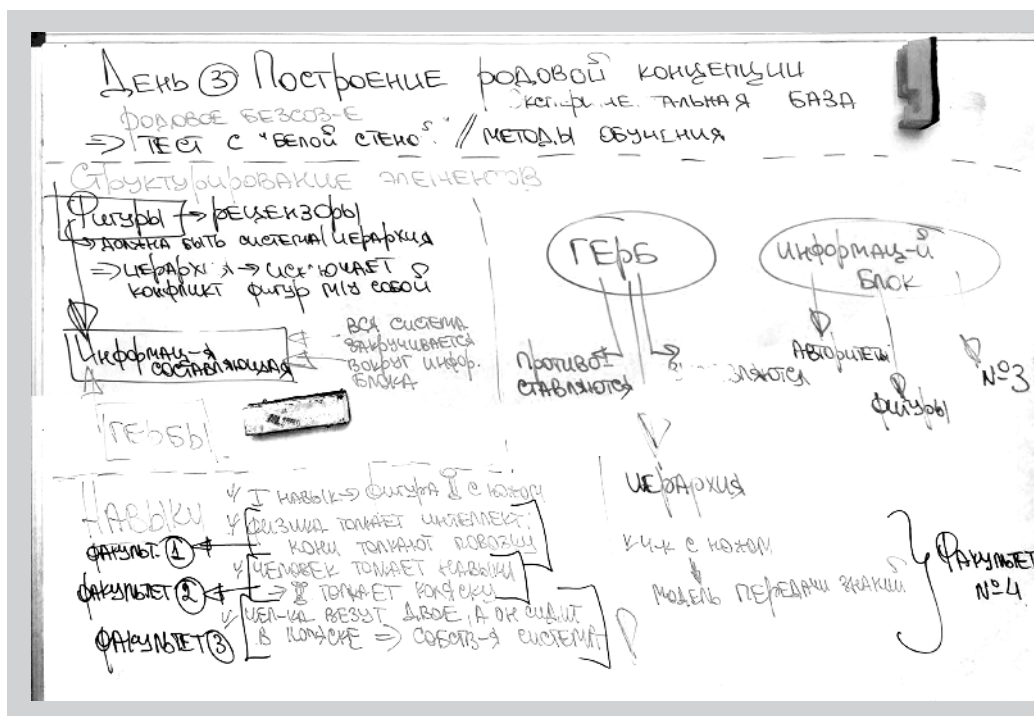 День ③ Построение родовой концепции
альная база
родовое безсоз-е
⇒ тест с "белой стеной" // методы обучения
Структурирование элементов
Фигуры → рецензоры
→ должна быть система/иерархия
⇒ иерархия → исключает
конфликт фигур м/у собой
Информац-я
составляющая
вся система
закручивается
вокруг инфор.
блока
Гербы
Герб
противо-
ставляются
вляются
иерархия
ч-к с ножом
модель передачи знаний
информац-й
блок
Авторитеты
фигуры
№3
Навыки
I навык → фигура с ножом
физика толкает интеллект;
кони толкают повозку
факульт. ①
человек толкает навыки
факультет ②
→ толкает коляски
чел-ка везут двое, а он сидит
в коляске ⇒ собств-я система
факультет ③
Факультет
№4